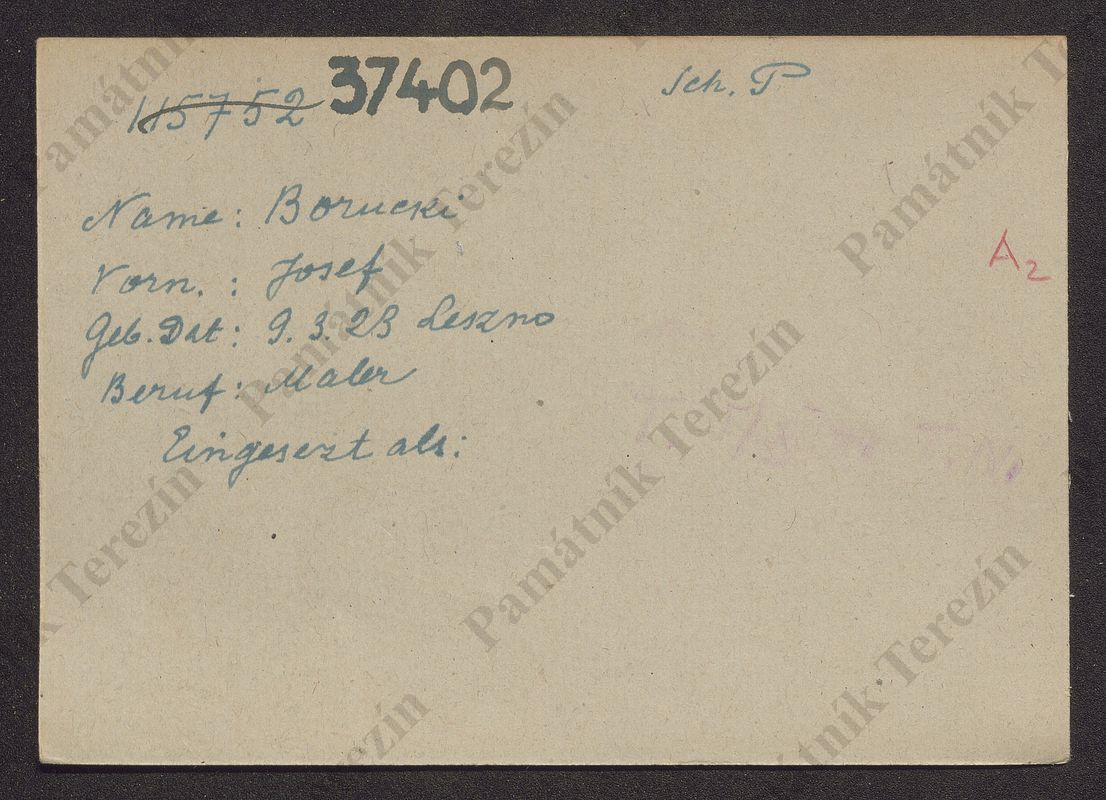 115752 37402 Sch. P
Name: Borucki
Vorn.: Josef
A2
Geb. Dat: 9.3.23 Leszno
Beruf: Maler
Eingesezt als:
Památník Terezín
Památník Terezín
Památník Terezín
Památník Terezín
Památník Terezín